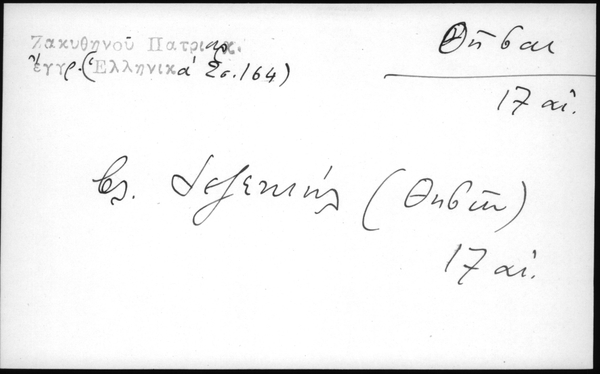 Ζακυθηνοῦ Πατριαρχ.
ἔγγρ. (Ἑλληνικά Σσ. 164)
Θῆβαι
17 αἰ.
(Θηβῶν)
17 αἰ.